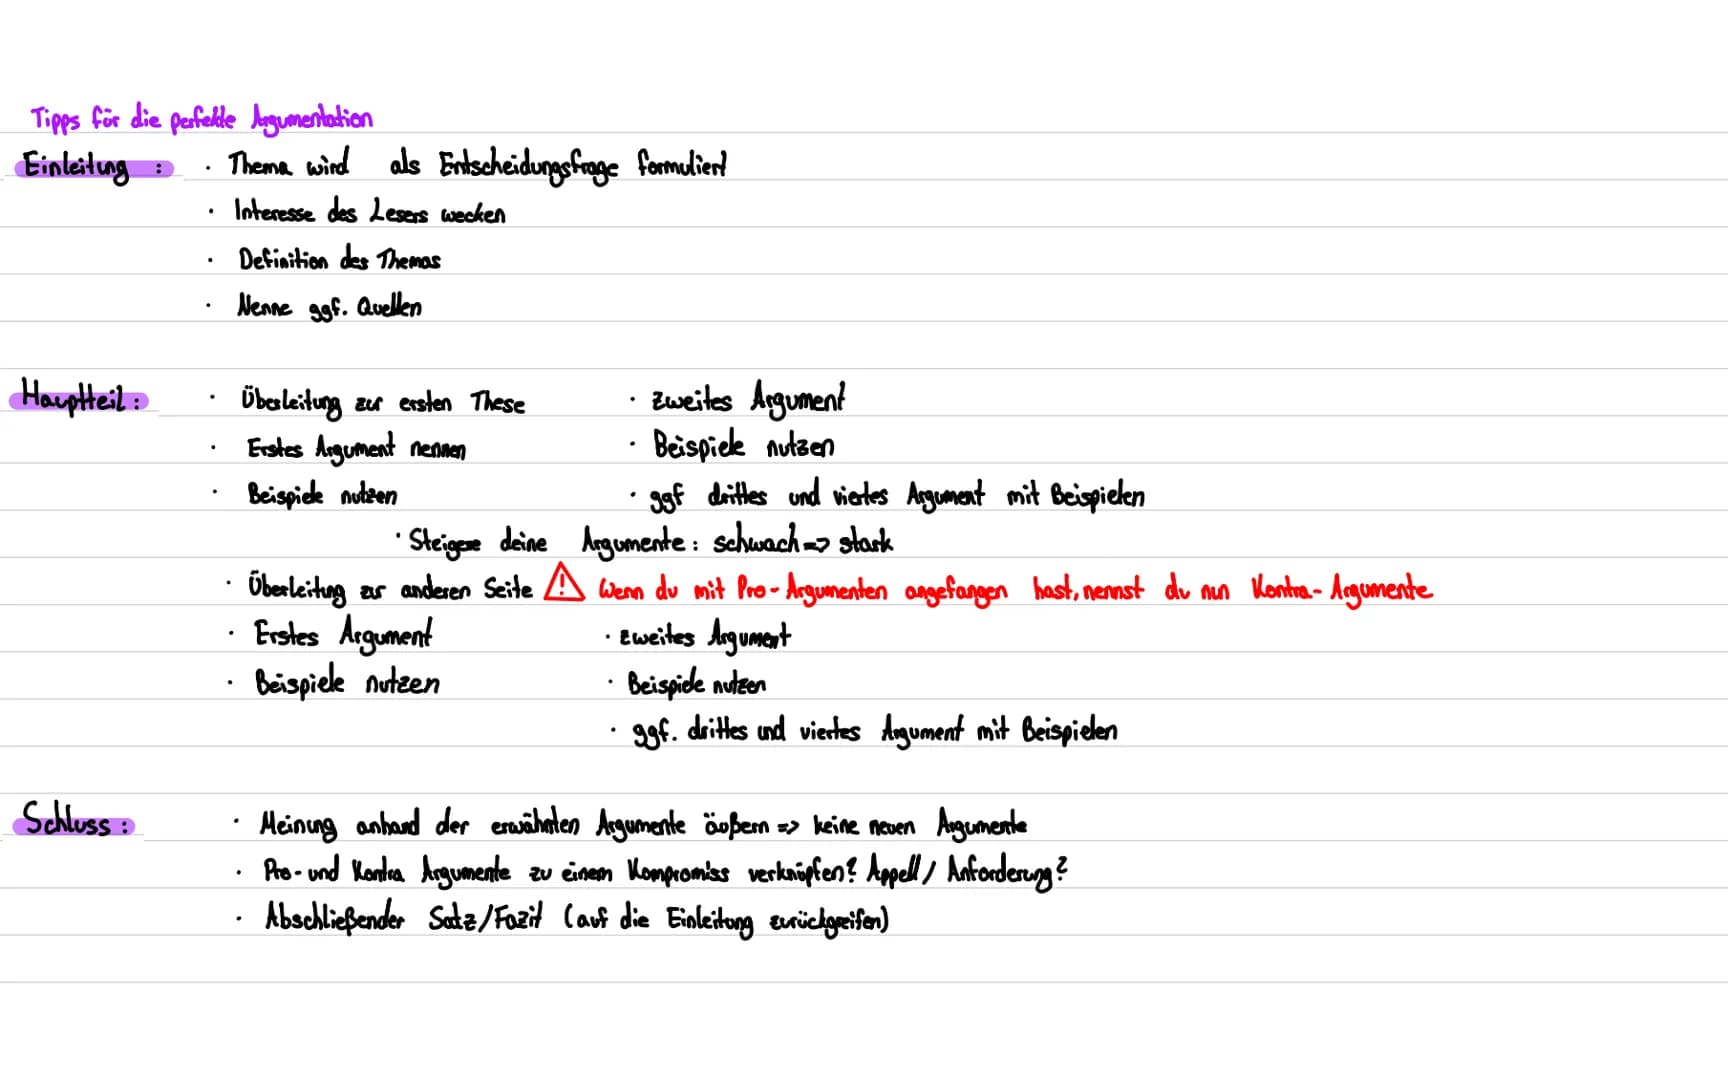 Tipps für die perfekte Argumentation
Einleitung : · Thema wird als Entscheidungsfrage formuliert
· Interesse des Lesers wecken
· Definition des Themas
· Nenne ggf. Quellen
Hauptteil : · Überleitung zur ersten These · zweites Argument
· Erstes Argument nennen · Beispiele nutzen
· Beispiele nutzen · ggf drittes und viertes Argument mit Beispielen
· Steigere deine Argumente : schwach => stark
· Überleitung zur anderen Seite ⚠ Wenn du mit Pro-Argumenten angefangen hast, nennst du nun Kontra-Argumente
· Erstes Argument · zweites Argument
· Beispiele nutzen · Beispiele nutzen
· ggf. drittes und viertes Argument mit Beispielen
Schluss : · Meinung anhand der erwähnten Argumente äußern => keine neuen Argumente
· Pro- und Kontra Argumente zu einem Kompromiss verknüpfen? Appell / Anforderung?
· Abschließender Satz/Fazit (auf die Einleitung zurückgreifen)